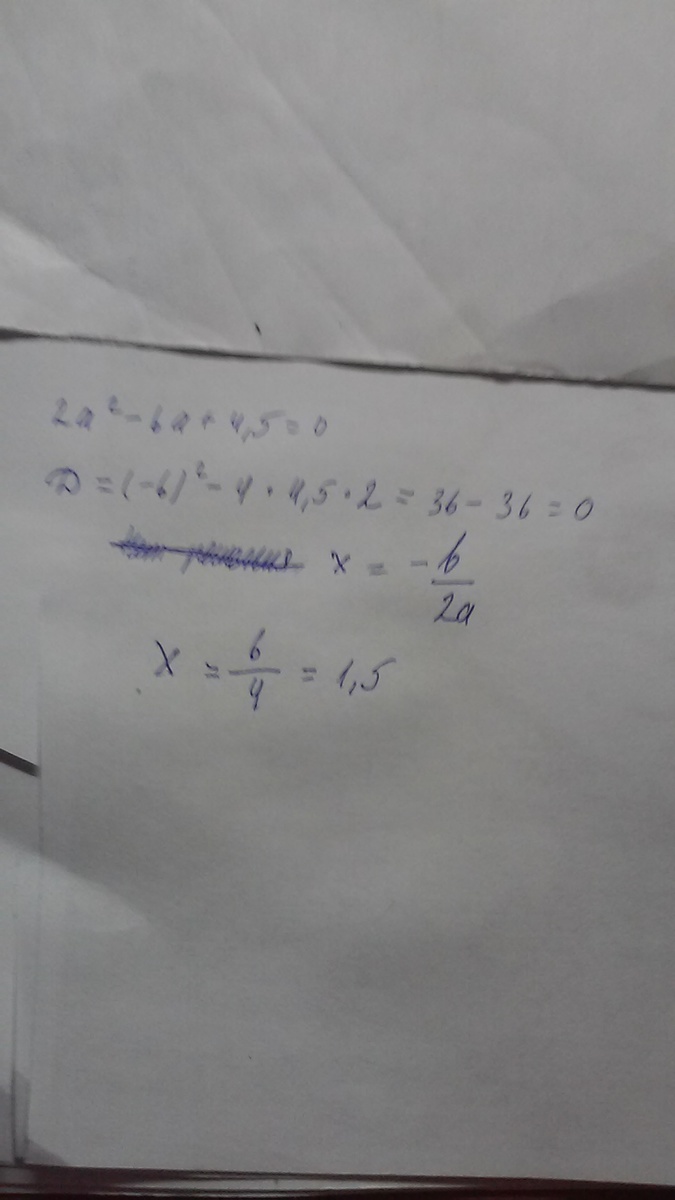 2a² - 6a + 4,5 = 0
D = (-6)² - 4 · 4,5 · 2 = 36 - 36 = 0
x = -b/2a
x = 6/4 = 1,5